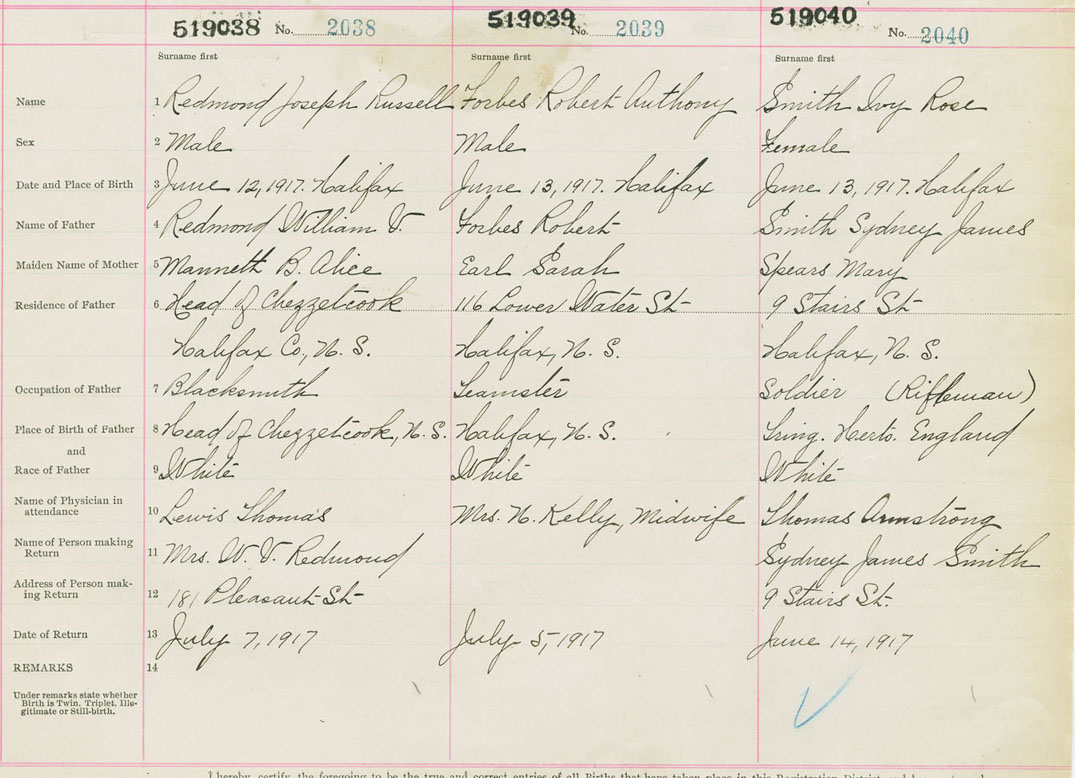 519038 No. 2038 519039 No. 2039 519040 No. 2040
Surname first Surname first Surname first
Name 1 Redmond Joseph Russell Forbes Robert Anthony Smith Ivy Rose
Sex 2 Male Male Female
Date and Place of Birth 3 June 12, 1917. Halifax June 13, 1917. Halifax June 13, 1917. Halifax
Name of Father 4 Redmond William V. Forbes Robert Smith Sydney James
Maiden Name of Mother 5 Manneth B. Alice Earl Sarah Spears Mary
Residence of Father 6 Head of Chezzetcook 116 Lower Water St 9 Stairs St
Halifax Co., N. S. Halifax, N. S. Halifax, N. S.
Occupation of Father 7 Blacksmith Teamster Soldier (Rifleman)
Place of Birth of Father 8 Head of Chezzetcook, N. S. Halifax, N. S. Tring. Herts. England
and
Race of Father 9 White White White
Name of Physician in
attendance 10 Lewis Thomas Mrs. N. Kelly, Midwife Thomas Armstrong
Name of Person making
Return 11 Mrs. W. V. Redmond Sydney James Smith
Address of Person mak-
ing Return 12 181 Pleasant St 9 Stairs St.
Date of Return 13 July 7, 1917 July 5, 1917 June 14, 1917
REMARKS 14
Under remarks state whether
Birth is Twin, Triplet, Ille-
gitimate or Still-birth.
I hereby certify the foregoing to be the true and correct entries of all Births that have taken place in this Registration District